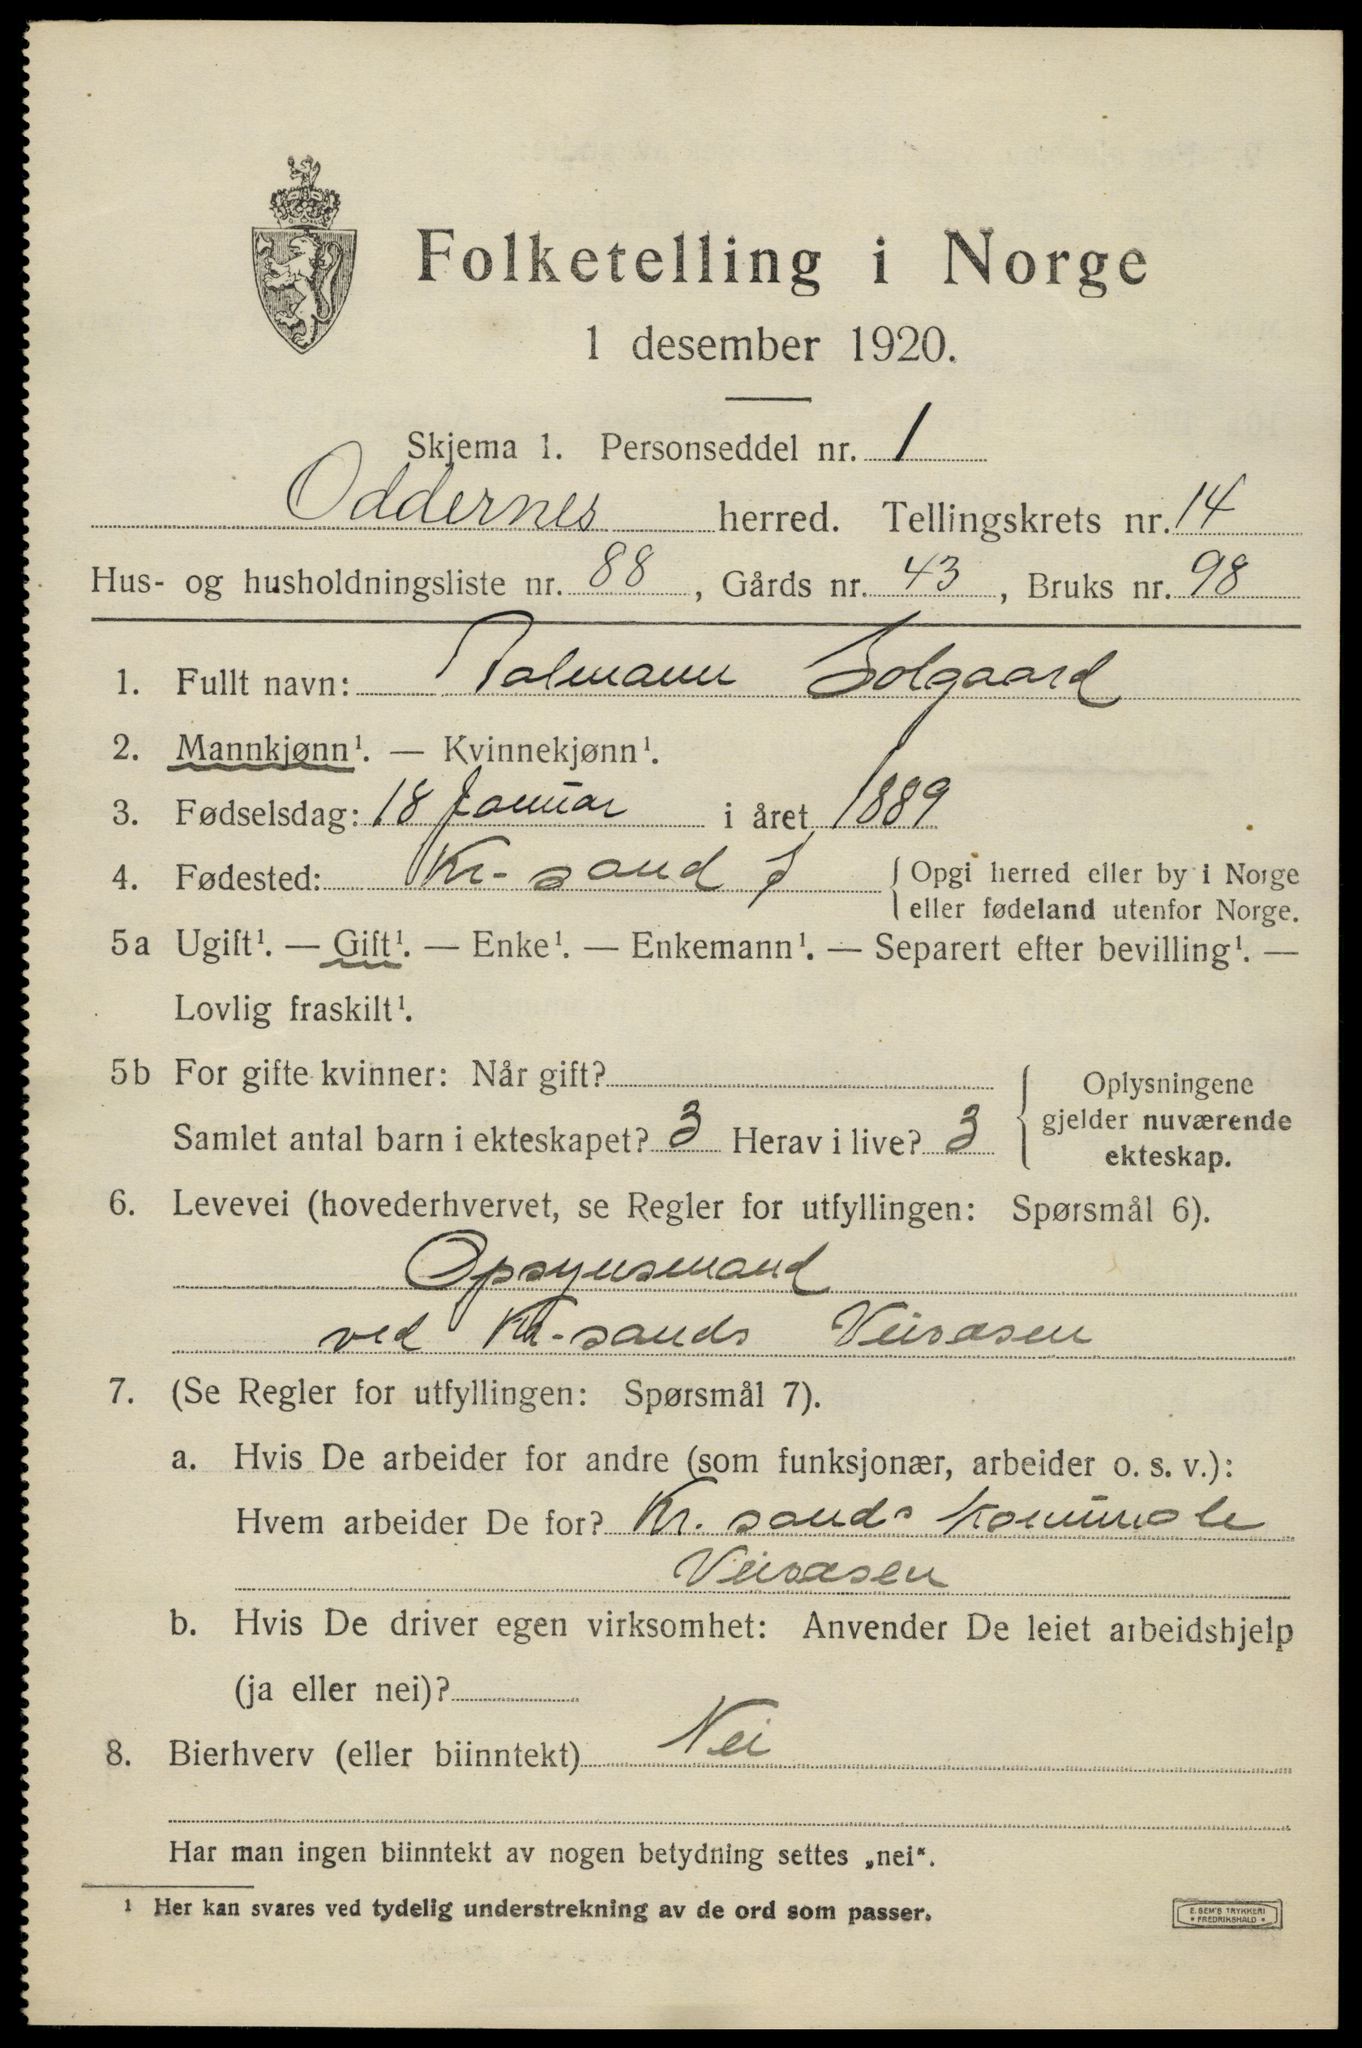 Folketelling i Norge
1 desember 1920.
Skjema 1. Personseddel nr. 1
Oddernes herred. Tellingskrets nr. 14
Hus- og husholdningsliste nr. 88, Gårds nr. 43, Bruks nr. 98
1. Fullt navn: Tolmann Solgaard
2. Mannkjønn¹. — Kvinnekjønn¹.
3. Fødselsdag: 18 Januar i året 1889
4. Fødested: Kr-sand S { Opgi herred eller by i Norge
eller fødeland utenfor Norge.
5a Ugift¹. — Gift¹. — Enke¹. — Enkemann¹. — Separert efter bevilling¹. —
Lovlig fraskilt¹.
5b For gifte kvinner: Når gift?
Samlet antal barn i ekteskapet? 3 Herav i live? 3
{ Oplysningene
gjelder nuværende
ekteskap.
6. Levevei (hovederhvervet, se Regler for utfyllingen: Spørsmål 6).
Opsynsmand
ved Kr-sands Veivæsen
7. (Se Regler for utfyllingen: Spørsmål 7).
a. Hvis De arbeider for andre (som funksjonær, arbeider o. s. v.):
Hvem arbeider De for? Kr. sands Komunale
Veivæsen
b. Hvis De driver egen virksomhet: Anvender De leiet arbeidshjelp
(ja eller nei)?
8. Bierhverv (eller biinntekt) Nei
Har man ingen biinntekt av nogen betydning settes „nei".
¹ Her kan svares ved tydelig understrekning av de ord som passer.
E. SEM'S TRYKKERI
* FREDRIKSHALD *